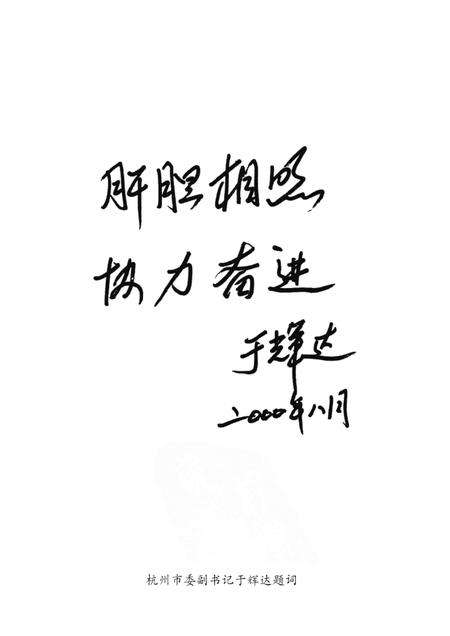 肝胆相照
协力奋进
于辉达
二000年八月
杭州市委副书记于辉达题词